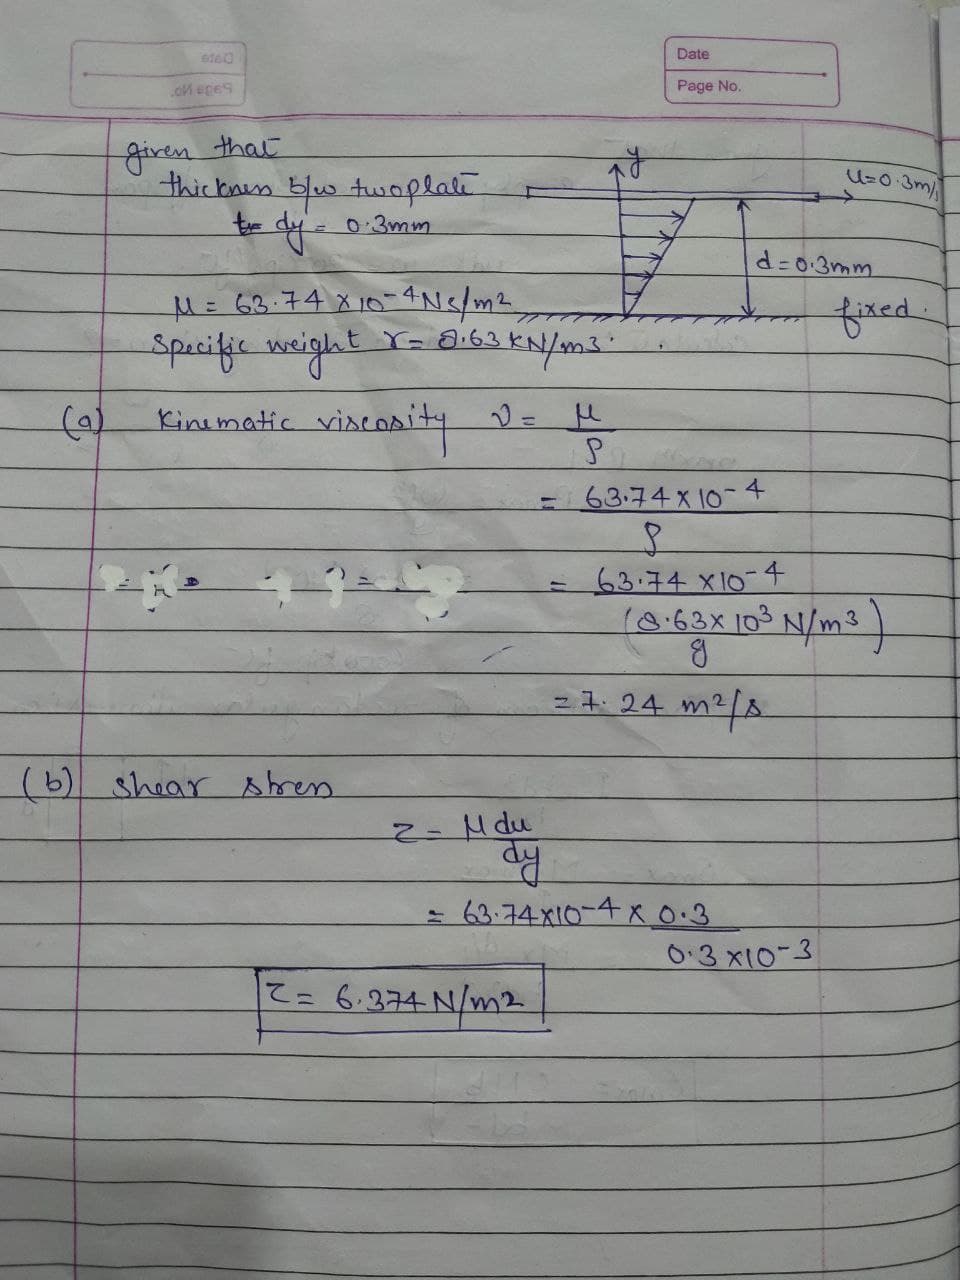 Date
Page No.
given that
thicknen b/w two plate
dy = 0.3mm
y
U=0.3m/s
d=0.3mm
fixed.
μ = 63.74 x 10-4 Ns/m2
Specific weight γ= 8.63 KN/m3
(a) Kinematic viscosity ν = μ
ρ
= 63.74 x 10-4
ρ
= 63.74 x10-4
(8.63x 103 N/m3)
g
=7.24 m2/s
(b) shear stren
τ = μ du
dy
= 63.74x10-4 x 0.3
0.3 x10-3
τ = 6.374 N/m2